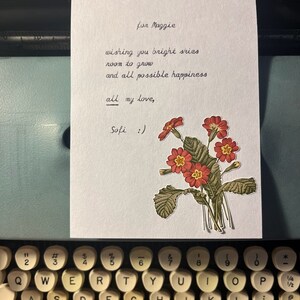 for Maggie
wishing you bright skies
room to grow
and all possible happiness
all my love,
Sofi :)
2 3 4 5 6 7 8 9
Q W E R T Y U I O P
A S D